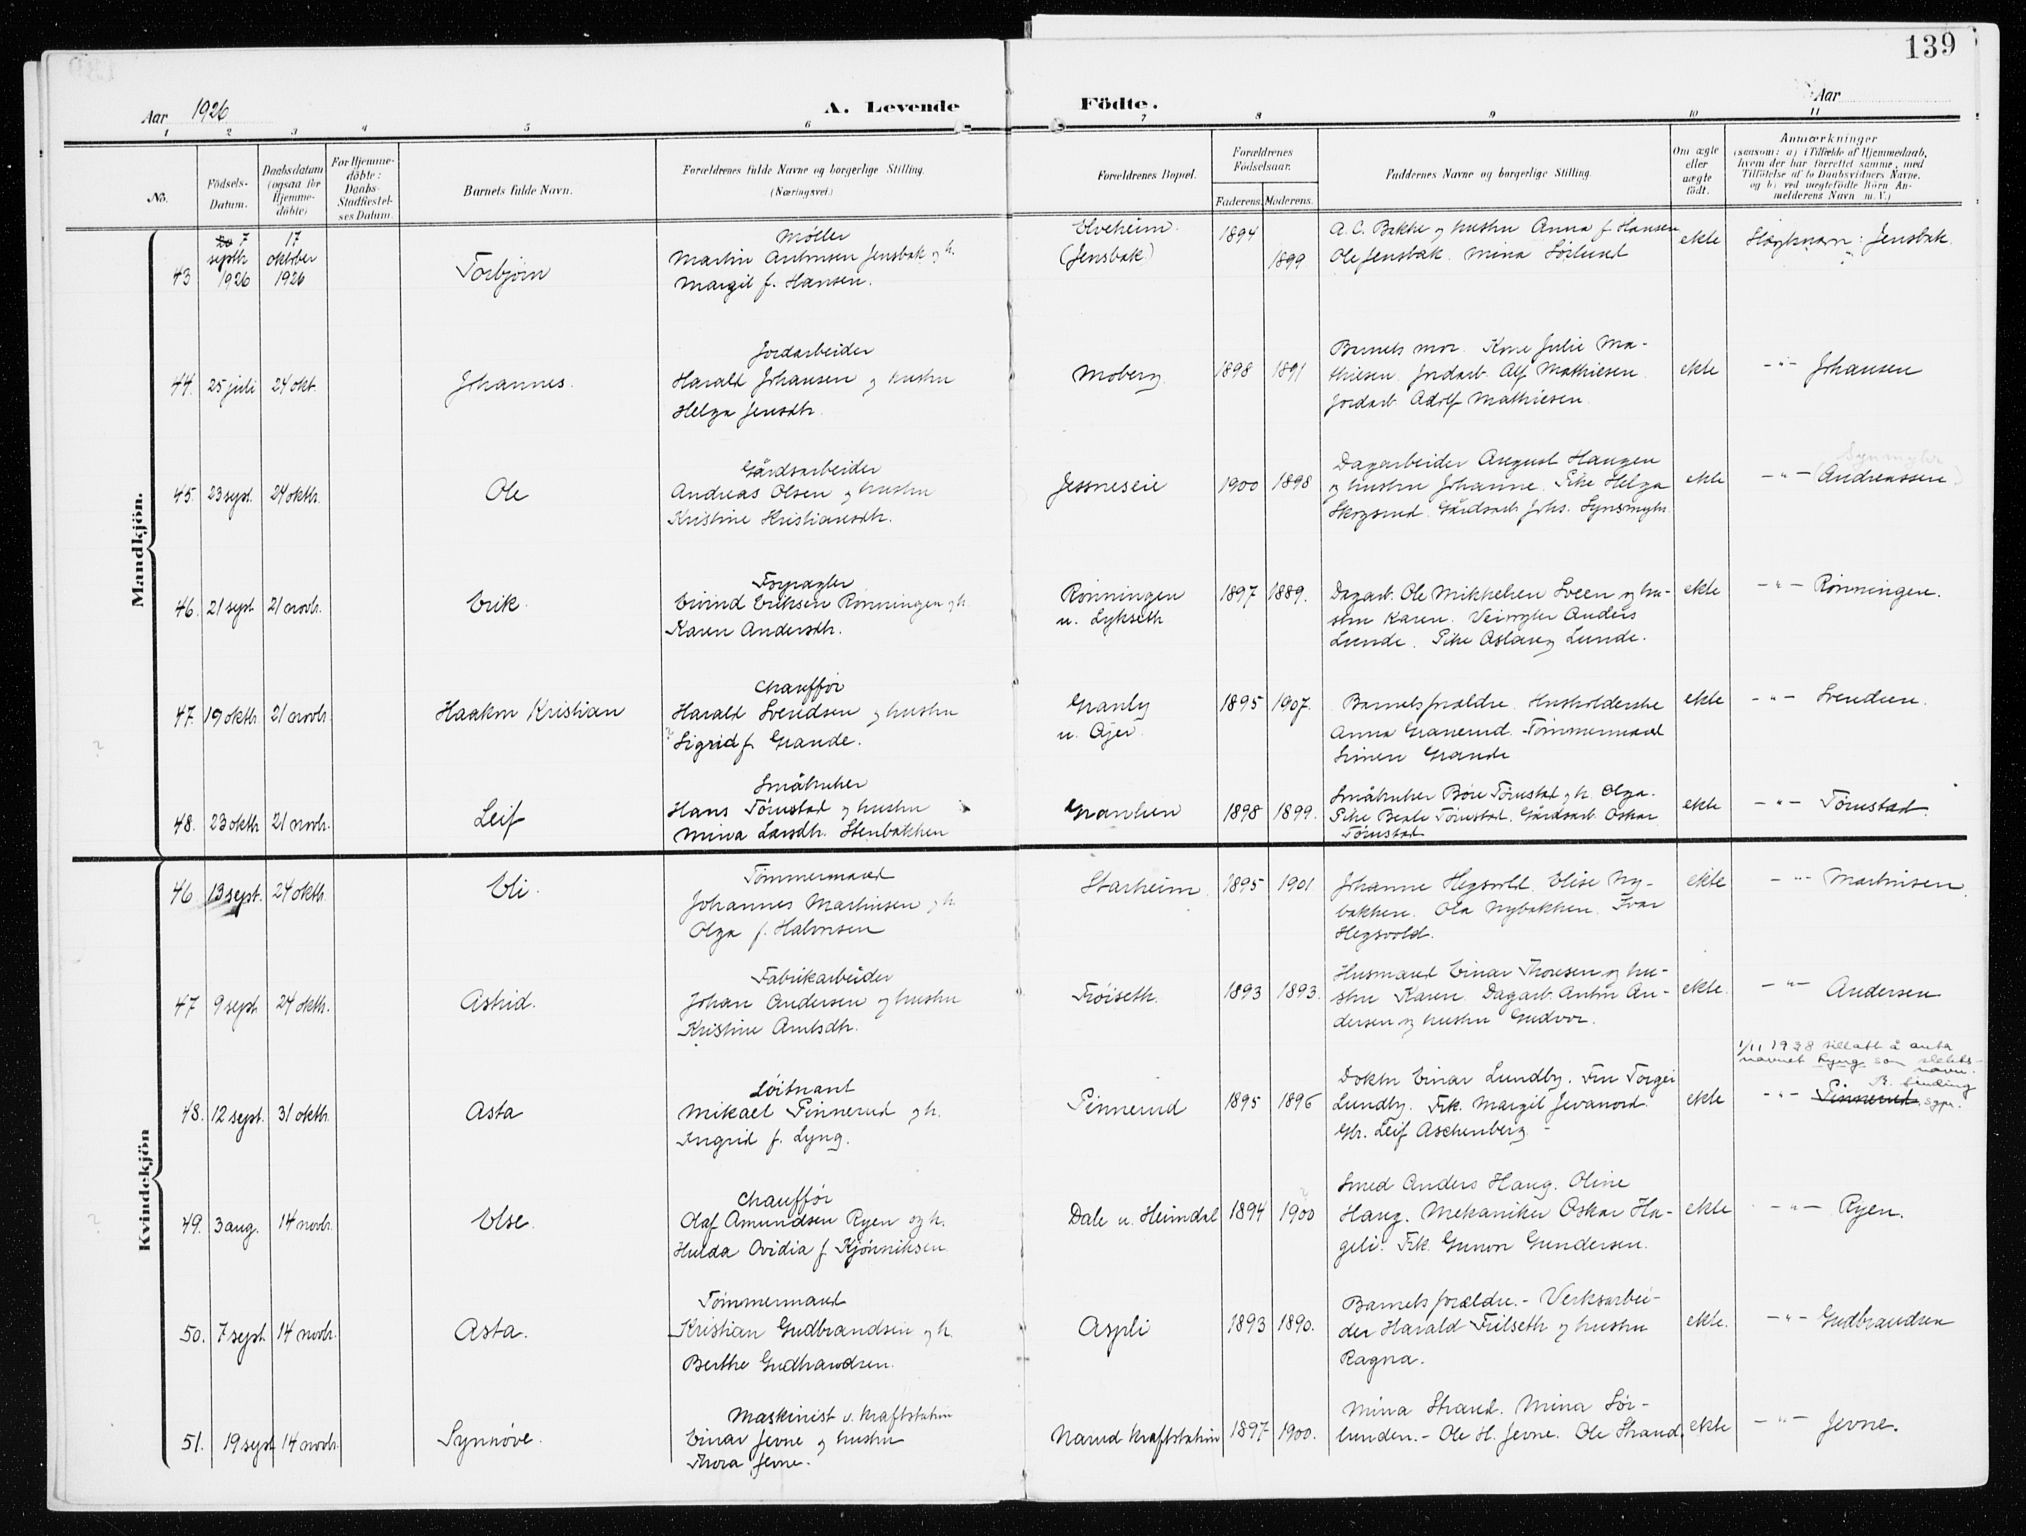 139
Aar 1926
A. Levende Födte.
Aar
1 2 3 4 5 6 7 8 9 10 11
No.
Födsels-Datum.
Daabsdatum (ogsaa for Hjemme-döbte)
For Hjemme-döbte: Daabs-Stadfæstel-ses Datum.
Barnets fulde Navn.
Forældrenes fulde Navne og borgerlige Stilling. (Næringsvei.)
Forældrenes Bopæl.
Forældrenes Födselsaar.
Faderens. Moderens.
Faddernes Navne og borgerlige Stilling.
Om ægte eller uægte födt.
Anmærkninger
(saasom: a) i Tilfælde af Hjemmedaab,
hvem der har forrettet samme, med
Tilföielse af to Daabsvidners Navne,
og b) ved uægtefödte Börn An-
melderens Navn m. V.)
Mandkjön.
43 7 septbr 1926 17 oktober 1926 Torbjørn
Møller
Martin Antonsen Jensbak og h.
Margit f. Hansen.
Elveheim
(Jensbak)
1894 1899
A. C. Bakke og hustru Anna f. Hansen
Ole Jensbak. Mina Sørlund
ekte Slegtnavn: Jensbak
44. 25 juli 24 okt. Johannes.
Jordarbeider
Harald Johansen og hustru
Helga Jensdtr.
Moberg 1898 1891
Barnets mor. Kone Julie Ma-
thiesen. Jordarb. Alf Mathiesen.
Jordarb. Adolf Mathiesen.
ekte -"- Johansen
45. 23 sept. 24 oktb. Ole
Gårdsarbeider
Andreas Olsen og hustru
Kristine Kristiansdtr.
Jessneseie 1900 1898
Dagarbeider August Haugen
og hustru Johanne. Pike Helga
Skogsrud. Gårdsarb. Johs. Synsmyhr
ekte -"- (Andreassen)
Synmyhr
46. 21 sept 21 novb. Erik.
Forpagter
Eivind Eriksen Rønningen og h.
Karen Andersdtr.
Rønningen
u. Lykseth
1897 1889.
Dagarb. Ole Mikkelsen Sveen og hu-
stru Karen. Veivogter Anders
Lunde. Pike Aslaug Lunde.
ekte -"- Rønningen.
47. 19 oktb. 21 novb. Haakon Kristian
Chauffør
Harald Svendsen og hustru
? Sigrid f. Grande.
Granly
u. Ajer.
1895 1907.
Barnets forældre. Husholderske
Anna Granerud. Tømmermand
Simen Grande
ekte -"- Svendsen.
?
48. 23 oktb 21 novb. Leif
Småbruker
Hans Tømstad og hustru
Mina Larsdtr. Stenbakken
Granlien 1898 1899.
Småbruker Børe Tømstad og h. Olga.
Pike Beate Tømstad. Gårdsarb Oskar
Tømstad
ekte -"- Tømstad.
Kvindekjön
46 13 sept. 24 oktb. Eli.
Tømmermand
Johannes Martinsen og h.
Olga f. Halvorsen
Starheim. 1895 1901
Johanne Hegsvold. Elise Ny-
bakken. Ola Nybakken. Ivar
Hegsvold.
ekte -"- Martinsen
47 9 sept 24 oktb. Astrid.
Fabrikarbeider
Johan Andersen og hustru
Kristine Amtsdtr.
Frøiseth. 1893 1893.
Husmand Einar Thoresen og hu-
stru Karen. Dagarb. Anton An-
dersen og hustru Gudvor.
ekte. -"- Andersen
48. 12 sept. 31 oktb. Asta
Løitnant
Mikael Pinnerud og h.
Ingrid f. Lyng.
Pinnerud 1895 1896
Doktor Einar Lundby. Fru Torgei
Lundby. Frk. Margit Jevanord.
Gbr. Leif Aschenberg -
ekte -"- Pinnerud
1/11 1938 tillatt å anta
navnet Lyng som slekts-
navn.
B. Sinding
sgpr.
49. 3 aug. 14 novb. Else.
Chauffør
Olaf Amundsen Ryen og h.
Hulda Ovidia f. Kjønniksen
Dale u. Heimdal 1894 1900
?
Smed Anders Haug. Oline
Haug. Mekaniker Oskar Ha-
geli. Frk. Gunvor Gundersen.
ekte -"- Ryen.
?
50. 7 sept 14 novb. Asta.
Tømmermand
Kristian Gudbrandsen og h.
Berthe Gudbrandsen.
Aspli 1893 1890.
Barnets forældre. - Verksarbei-
der Harald Frilseth og hustru
Ragna.
ekte. -"- Gudbrandsen
51. 19 sept 14 novb. Synnøve.
Maskinist v. kraftstation
Einar Jevne og hustru
Thora Jevne.
Narud kraftstation 1897 1900.
Mina Strand. Mina Sør-
lunden. - Ole H. Jevne. Ole Strand.
ekte -"- Jevne.